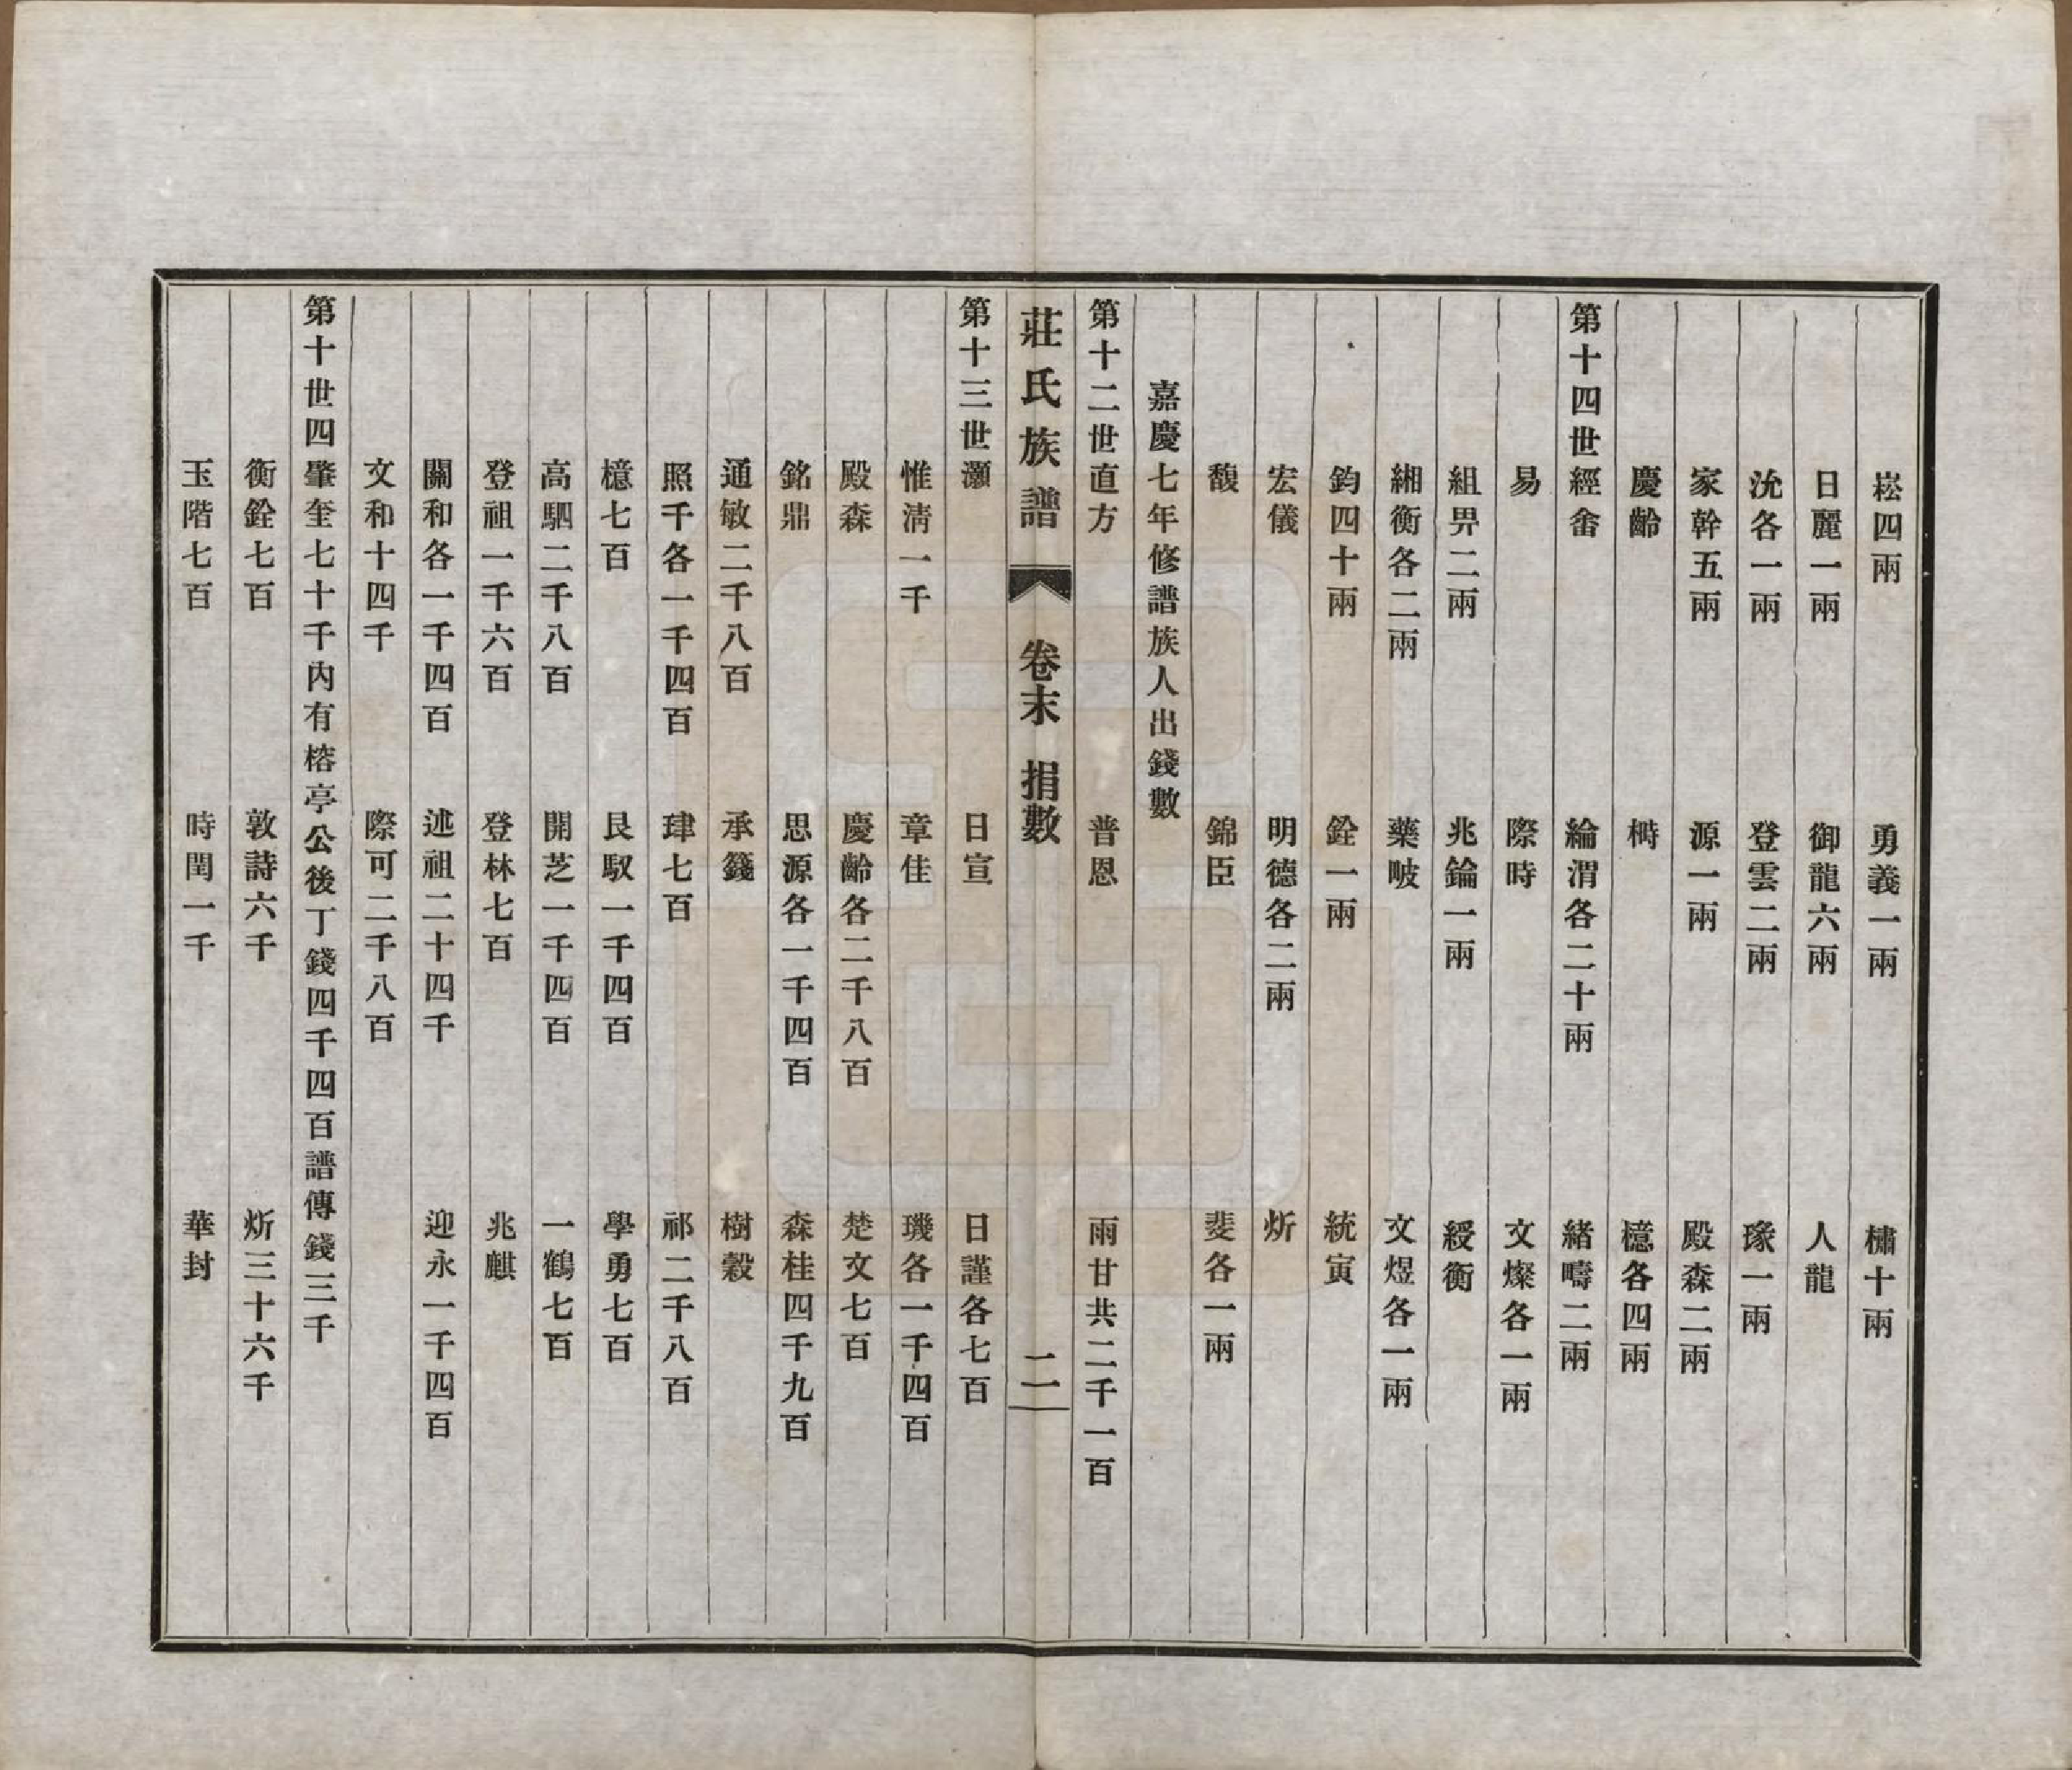 崧四兩　勇義一兩　橚十兩
日麗一兩　御龍六兩　人龍
沇各一兩　登雲二兩　瑑一兩
家幹五兩　源一兩　殿森二兩
慶齡　榯　檍各四兩
第十四世經畬　綸渭各二十兩　緒疇二兩
易　際時　文燦各一兩
組畀二兩　兆錀一兩　綬衡
緗衡各二兩　藥畯　文煜各一兩
鈞四十兩　銓一兩　統寅
宏儀　明德各二兩　炘
馥　錦臣　斐各一兩
嘉慶七年修譜族人出錢數
第十二世直方　普恩　雨甘共二千一百
莊氏族譜　卷末　捐數　二
第十三世灝　日宣　日謹各七百
惟清一千　章佳　璣各一千四百
殿森　慶齡各二千八百　楚文七百
銘鼎　思源各一千四百　森桂四千九百
通敏二千八百　承籛　樹穀
照千各一千四百　瑋七百　祁二千八百
檍七百　艮馭一千四百　學勇七百
高駟二千八百　開芝一千四百　一鶴七百
登祖一千六百　登林七百　兆麒
關和各一千四百　述祖二十四千　迎永一千四百
文和十四千　際可二千八百
第十世四肇奎七十千內有榕亭公後丁錢四千四百譜傳錢三千
衡銓七百　敦詩六千　炘三十六千
玉階七百　時閏一千　華封